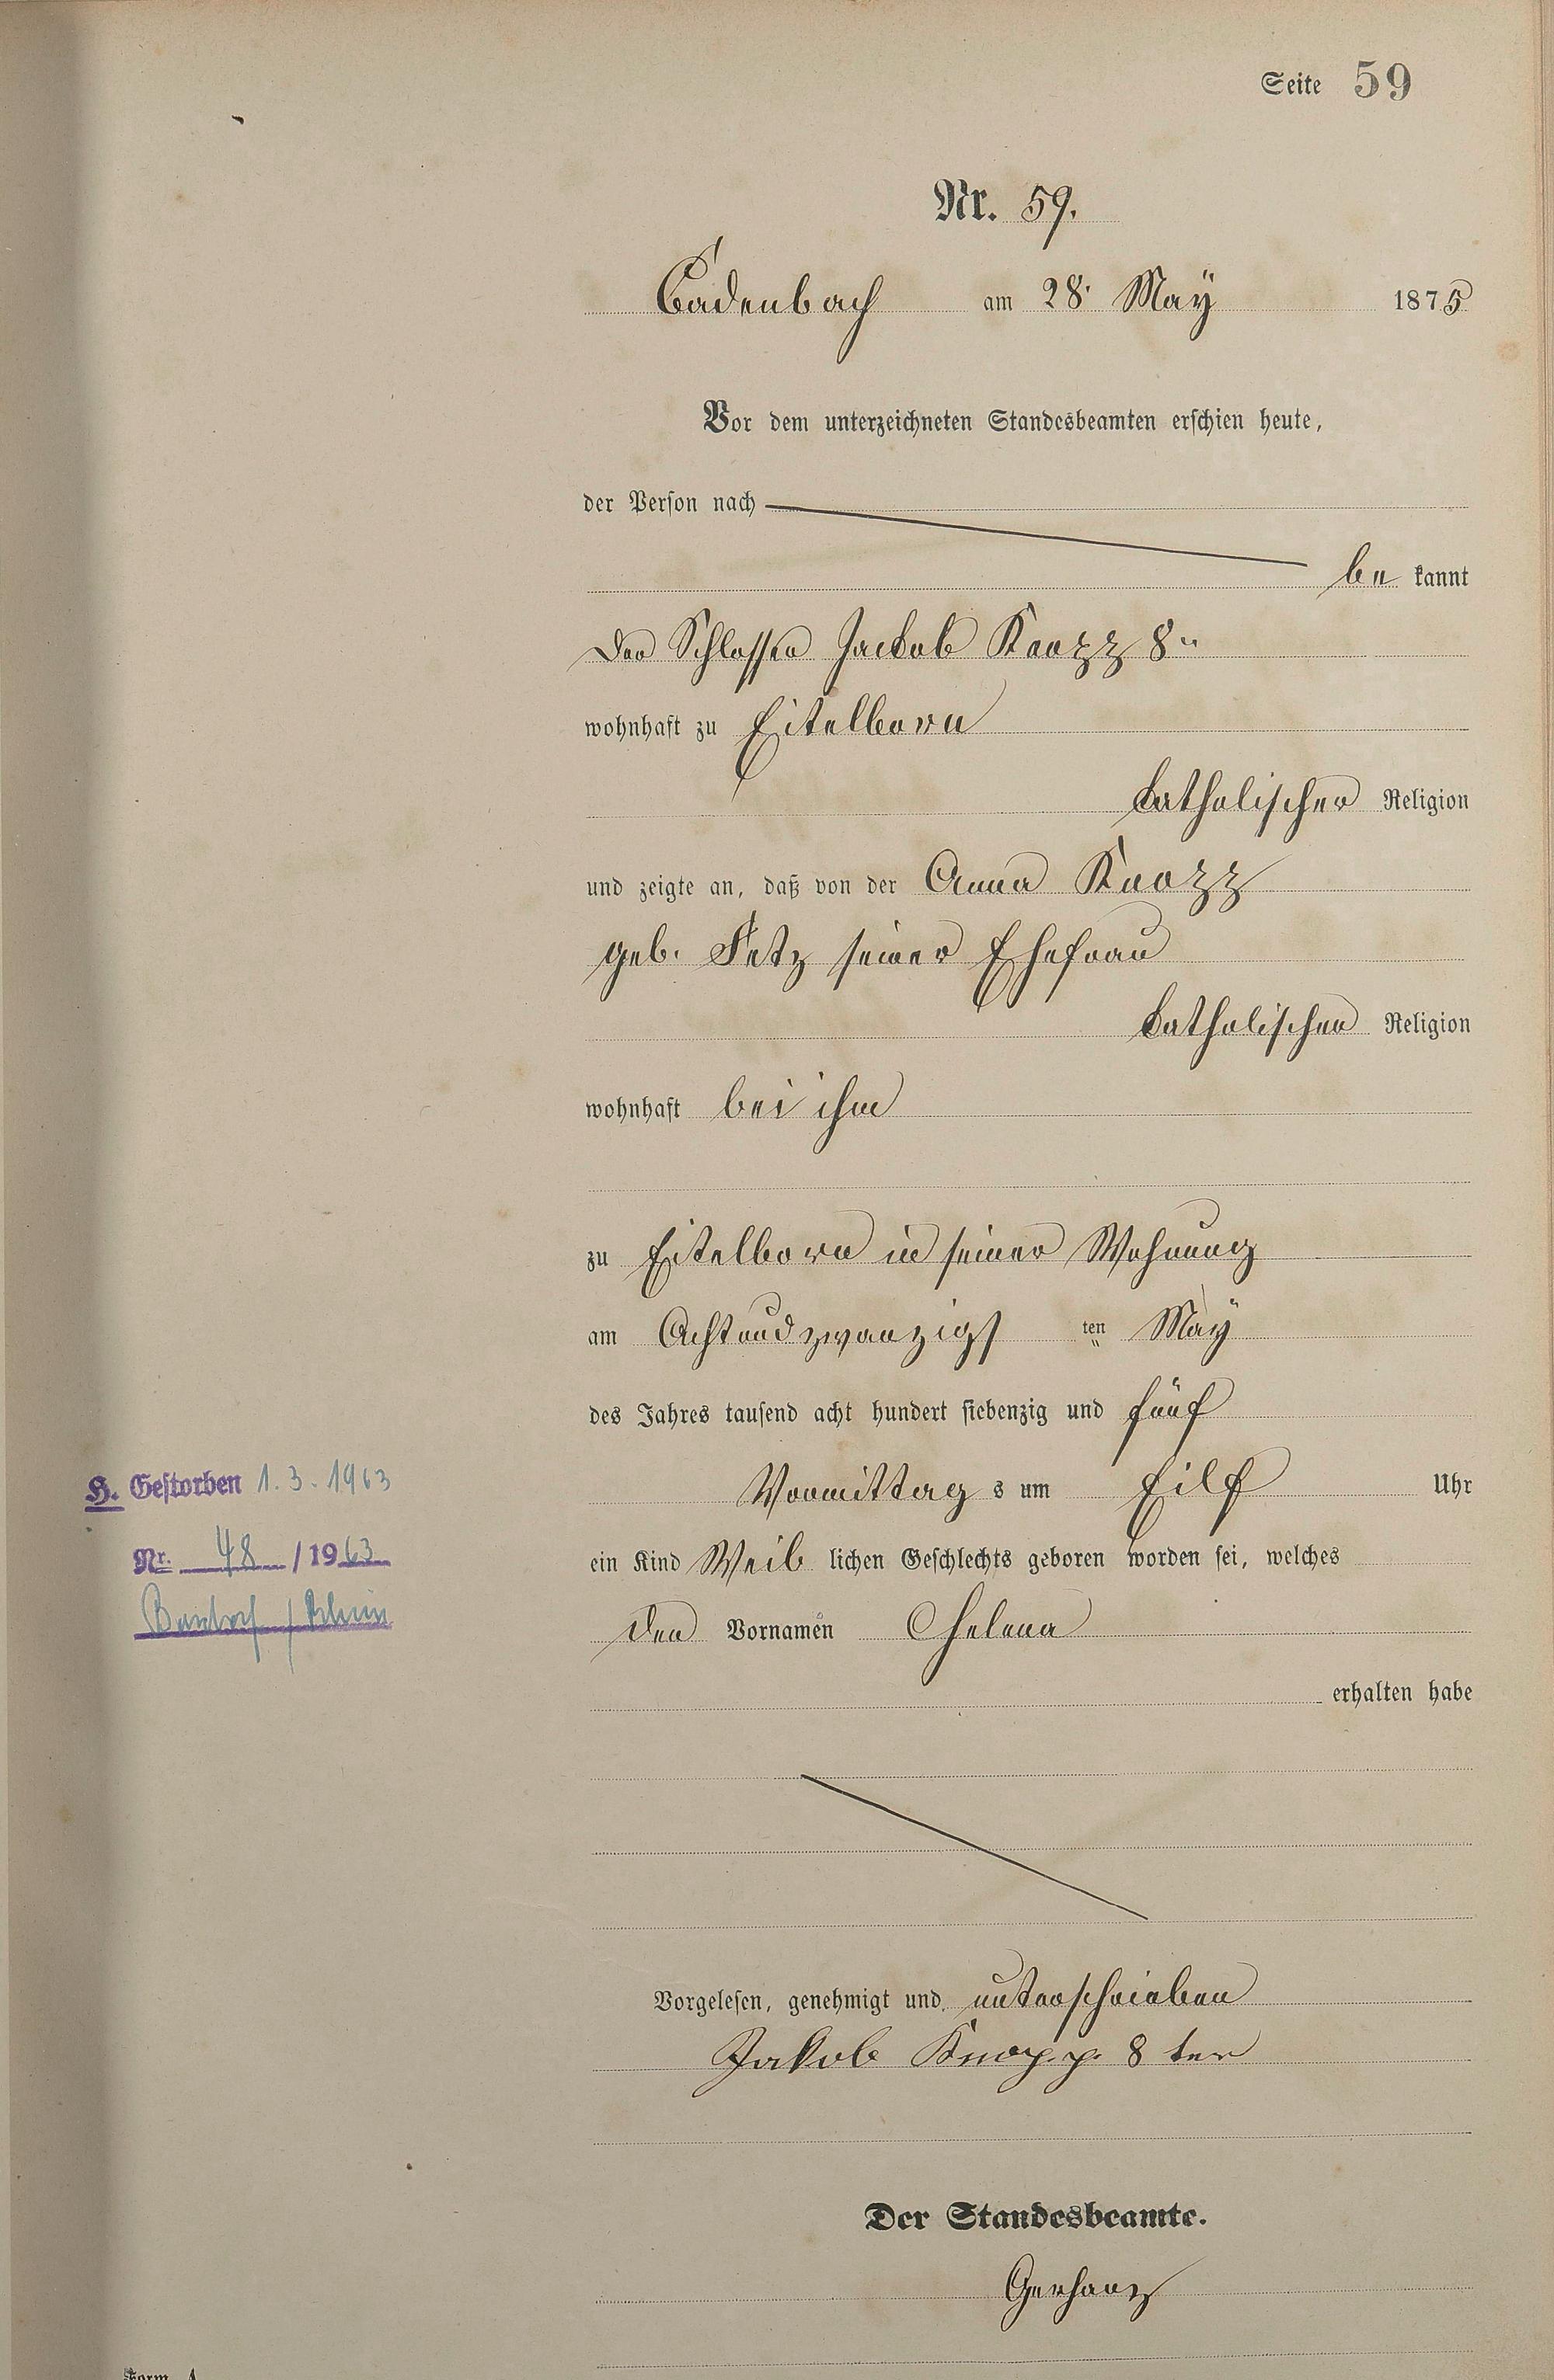 Seite 59
Nr. 59.
Cadenbach am 28. May 1875
Vor dem unterzeichneten Standesbeamten erschien heute,
der Person nach
be kannt
der Schlosser Jackob Knopp 8r
wohnhaft zu Eitelborn
katholischer Religion
und zeigte an, daß von der Anna Knopp
geb. Fetz seiner Ehefrau
katholischer Religion
wohnhaft bei ihm
zu Eitelborn in seiner Wohnung
am Achtundzwanzigs ten May
des Jahres tausend acht hundert siebenzig und fünf
Vormittag s um Eilf Uhr
ein Kind Weib lichen Geschlechts geboren worden sei, welches
den Vornamen Helena
erhalten habe
H. Gestorben 1.3.1963
Nr. 48 / 1963
Bendorf / Rhein
Vorgelesen, genehmigt und unterschrieben
Jakob Knopp 8 ter
Der Standesbeamte.
Gerhanz
Form. A